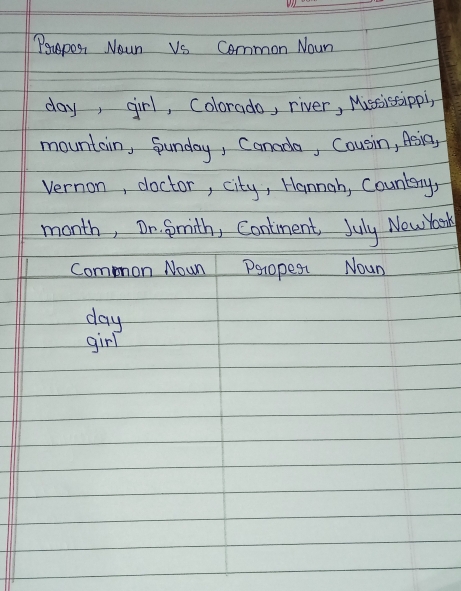 Proper Noun Vs Common Noun
day, girl, Colorado, river, Mississippi,
mountain, Sunday, Canada, Cousin, Asia,
Vernon, doctor, city, Hannah, Country,
month, Dr. Smith, Continent, July New York
Common Noun Proper Noun
day
girl